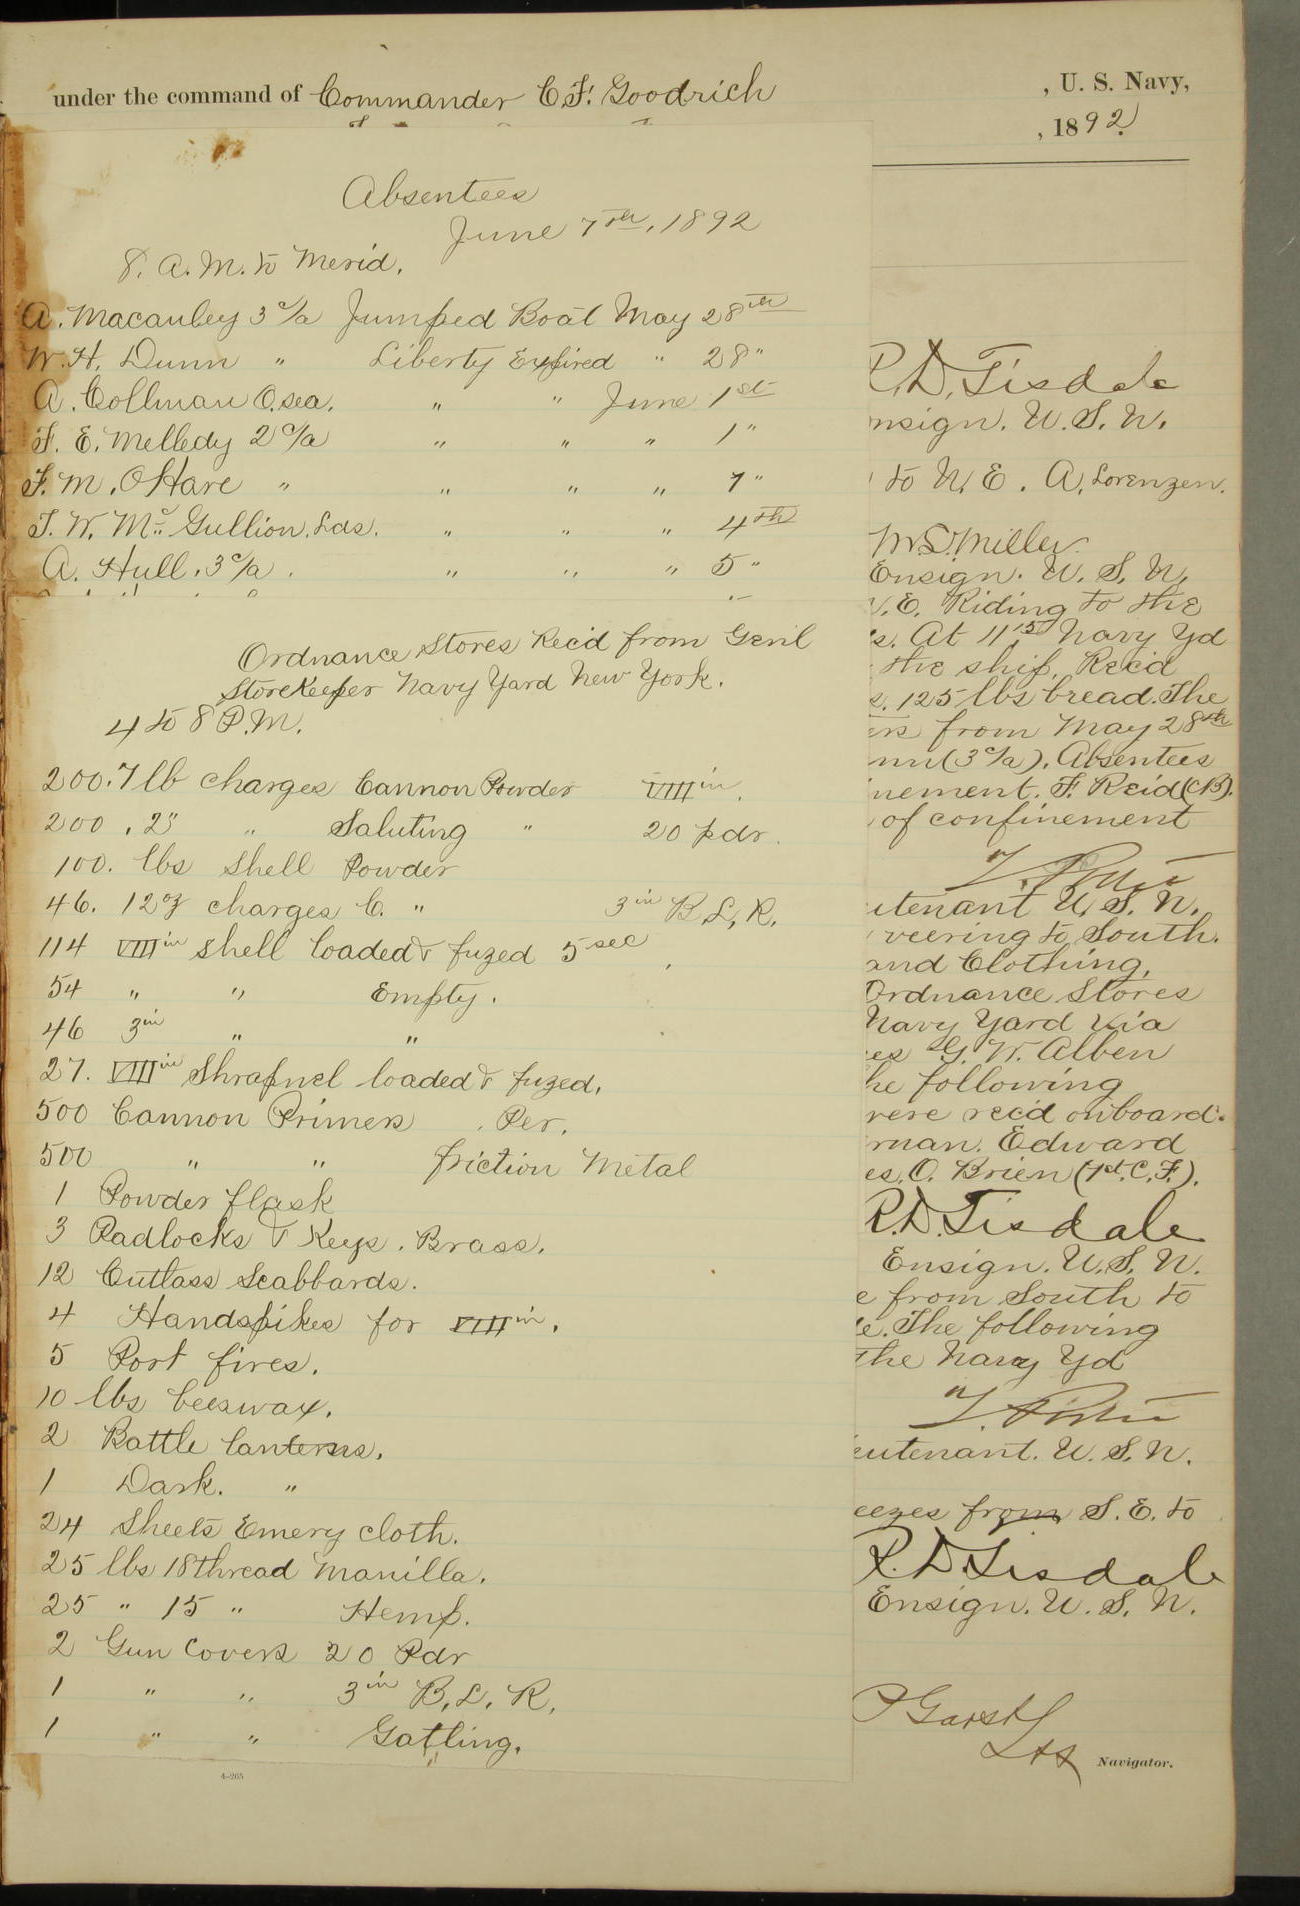 under the command of Commander C.F. Goodrich , U. S. Navy,
, 1892.
Absentees
June 7th, 1892
8. A.M. to Merid.
A. Macauley 3 c/a Jumped Boat May 28th
W.H. Dunn " Liberty Expired " 28"
A. Collman O.sea. " " June 1st
F. E. Melledy 2 c/a " " " 1"
F. M. OHare " " " " 1"
T. W. Mc Gullion. Lds. " " " 4th
A. Hull. 3 c/a. " " " 5"
Ordnance Stores Rec'd from Genl
Storekeeper Navy Yard New York.
4 to 8 P.M.
200. 7 lb charges Cannon Powder VIIIin.
200 . 2" " Saluting " 20 pdr.
100. lbs Shell Powder
46. 12 oz charges C. " 3in B.L.R.
114 VIIIin shell loaded & fuzed 5 sec
54 " " Empty.
46 3in " "
27. VIIIin Shrapnel loaded & fuzed.
500 Cannon Primers . Per.
500 " " friction Metal
1 Powder flask
3 Padlocks & Keys. Brass.
12 Cutlass Scabbards.
4 Handspikes for VIIIin.
5 Port fires.
10 lbs beeswax.
2 Battle lanterns.
1 Dark. "
24 Sheets Emery cloth.
25 lbs 18 thread Manilla.
25 " 15 " Hemp.
2 Gun Covers 20 Pdr
1 " " 3in B.L.R.
1 " " Gatling.
4-265
R.D. Tisdale
nsign. U.S.N.
to N.E. A. Lorenzen.
M.L. Miller
Ensign. U.S.N.
.E. Riding to the
s. At 11 15 Navy Yd
the ship. Rec'd
s. 125 lbs bread. The
ers from May 28th
nn (3 c/a). Absentees
nement. F. Reid (CB).
of confinement
utenant U.S.N.
veering to South.
and Clothing,
Ordnance Stores
Navy Yard via
es G. W. Alben
he following
were rec'd onboard.
rman. Edward
es. O. Brien (1st. C.F.).
R.D. Tisdale
Ensign. U.S.N.
e from South to
e. The following
the Navy Yd
eutenant. U.S.N.
eezes from S.E. to
R.D. Tisdale
Ensign. U.S.N.
P Garst
Navigator.